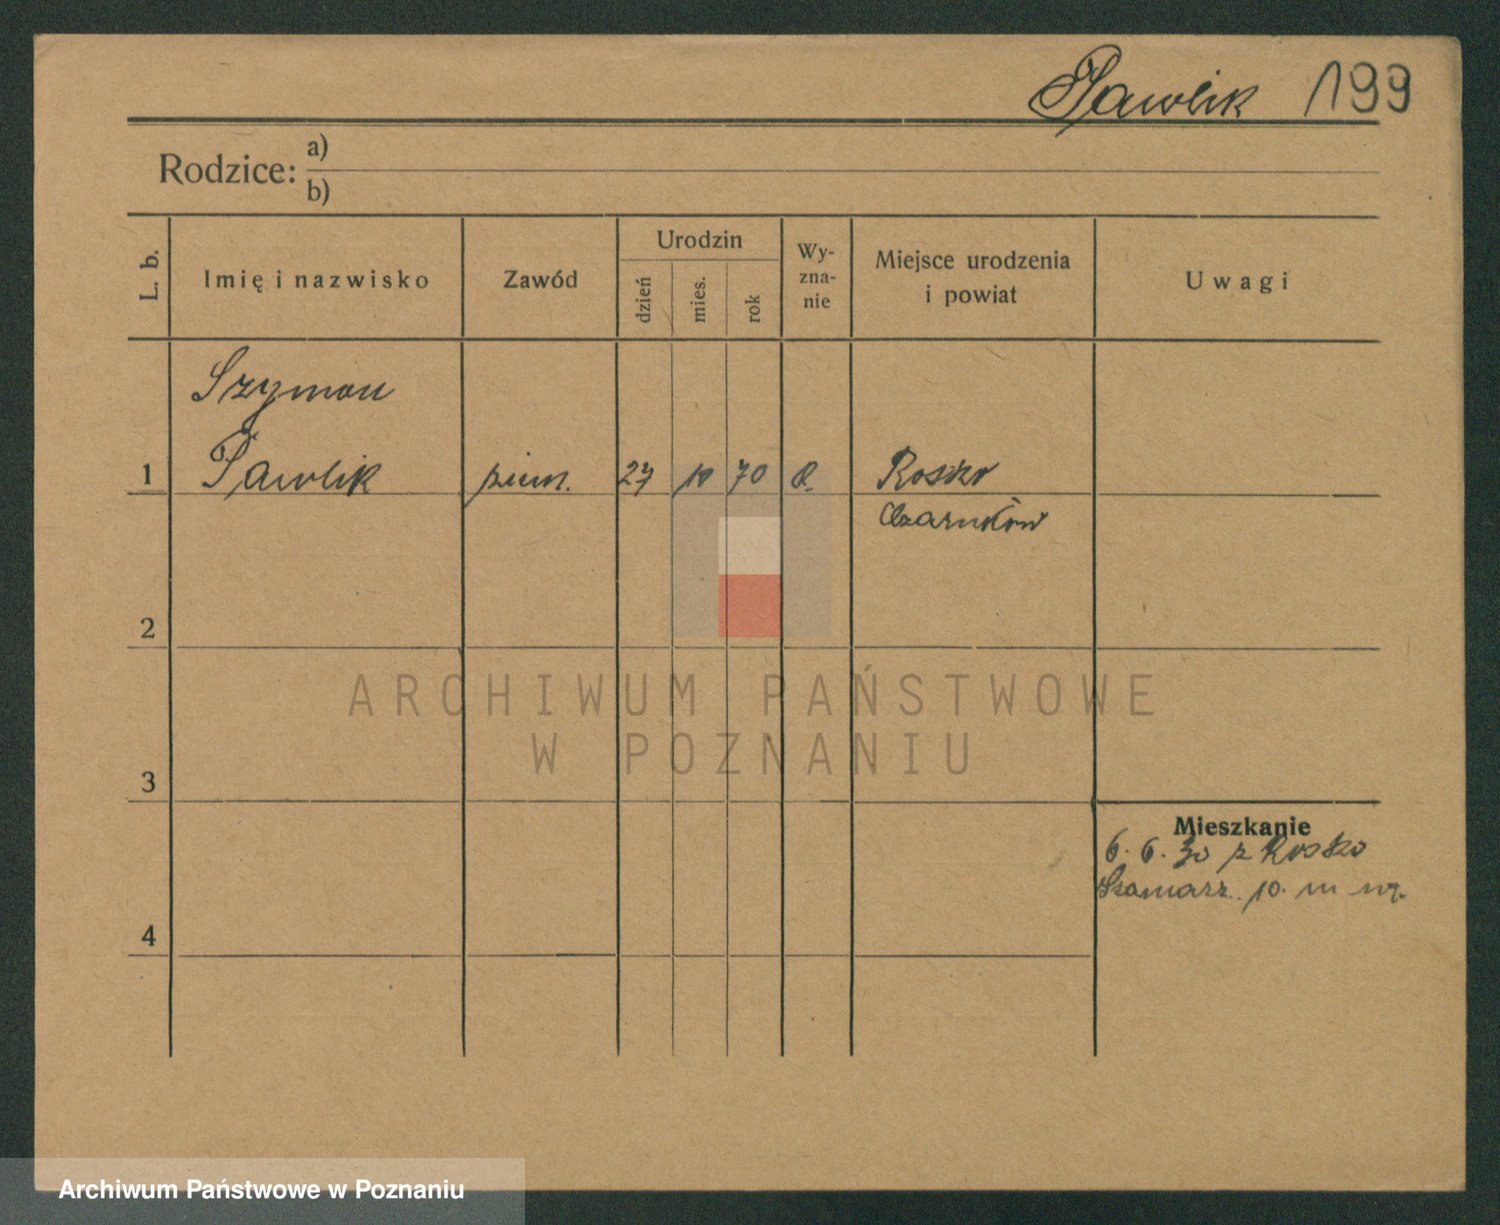 Pawlik 199
Rodzice: a)
b)
L. b.
Imię i nazwisko
Zawód
Urodzin
dzień
mies.
rok
Wy-
zna-
nie
Miejsce urodzenia
i powiat
Uwagi
Szymon
1 Pawlik 27 10 70 Rosko
Czarnków
2
3
4
Mieszkanie
6. 6. 30 z Rosko
10. m
ARCHIWUM PAŃSTWOWE
W POZNANIU
Archiwum Państwowe w Poznaniu